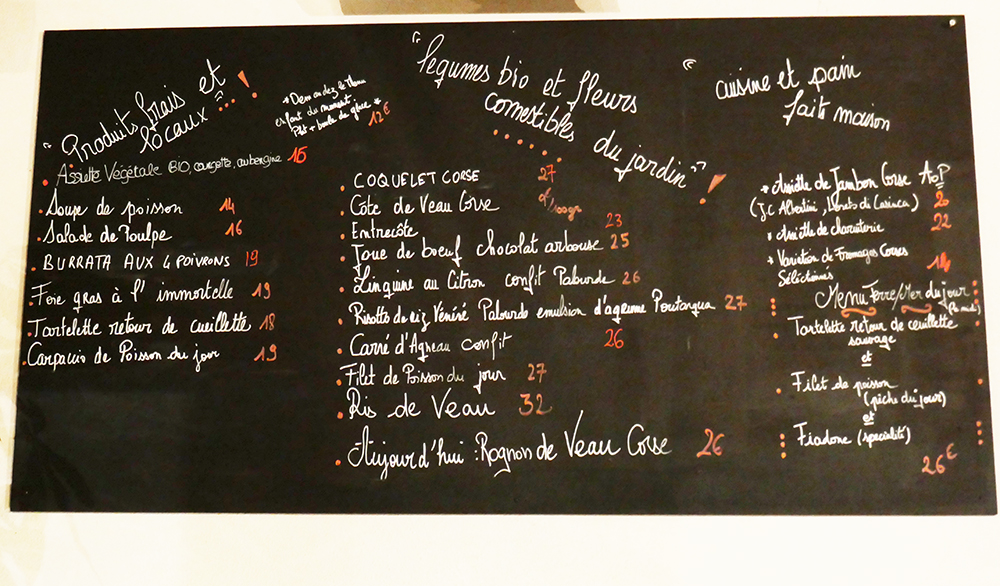 "Produits frais et
locaux"...!
* Demandez le Menu
enfant du moment
Plat + boule de glace *
12€
Assiette Végétale BIO, courgette, aubergine 15
Soupe de poisson 14
Salade de Poulpe 16
BURRATA AUX 4 POIVRONS 19
Foie gras à l'immortelle 19
Tartelette retour de cueillette 18
Carpaccio de Poisson du jour 19
"légumes bio et fleurs
comestibles du jardin"!
COQUELET CORSE 27
Côte de Veau Corse
Entrecôte 23
Joue de boeuf chocolat arbouse 25
Linguine au Citron confit Palourde 26
Risotto de riz Vénéré Palourde emulsion d'agrume Poutargua 27
Carré d'Agneau confit 26
Filet de Poisson du jour 27
Ris de Veau 32
Aujourd'hui : Rognon de Veau Corse 26
" cuisine et pain
faits maison
* Assiette de Jambon Corse AoP
(J.c Albertini, Loreto di Casinca) 20
* Assiette de charcuterie 22
* Variation de Fromages Corses
Séléctionnés
Menu Terre/Mer du jour
Tartelette retour de cueillette
sauvage
et
Filet de poisson
(pêche du jour)
et
Fiadone (specialité)
26€